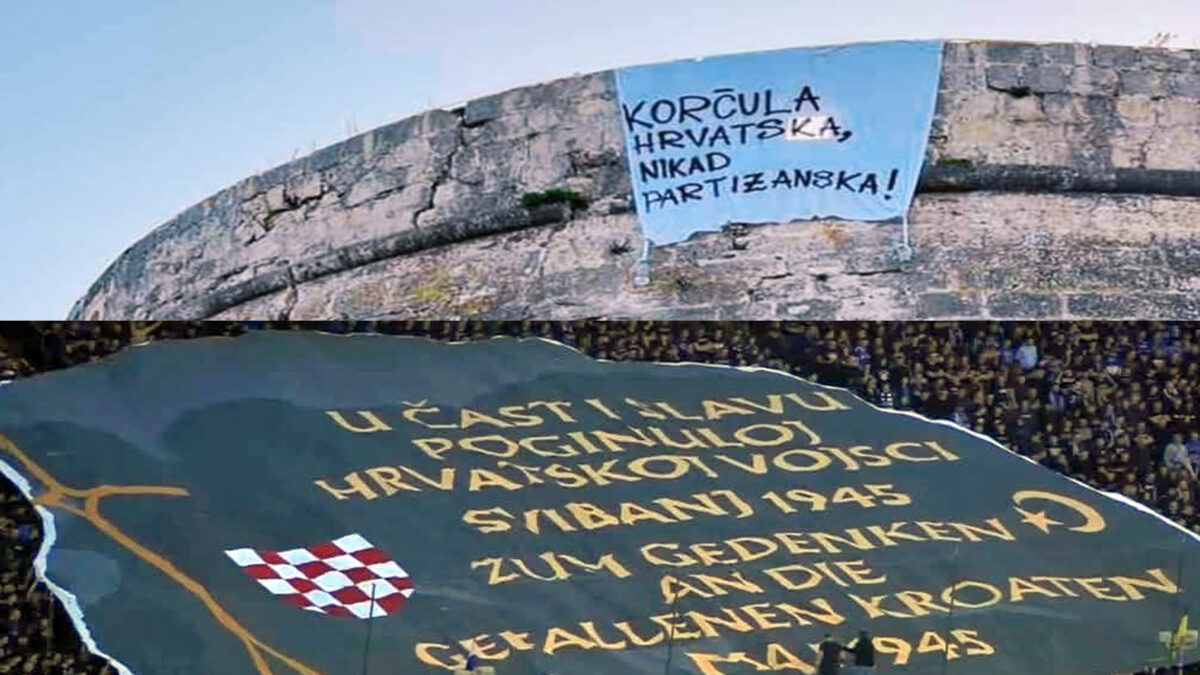 KORČULA
HRVATSKA,
NIKAD
PARTIZANSKA!
U ČAST I SLAVU
POGINULOJ
HRVATSKOJ VOJSCI
SVIBANJ 1945
ZUM GEDENKEN
AN DIE
GEFALLENEN KROATEN
MAI 1945